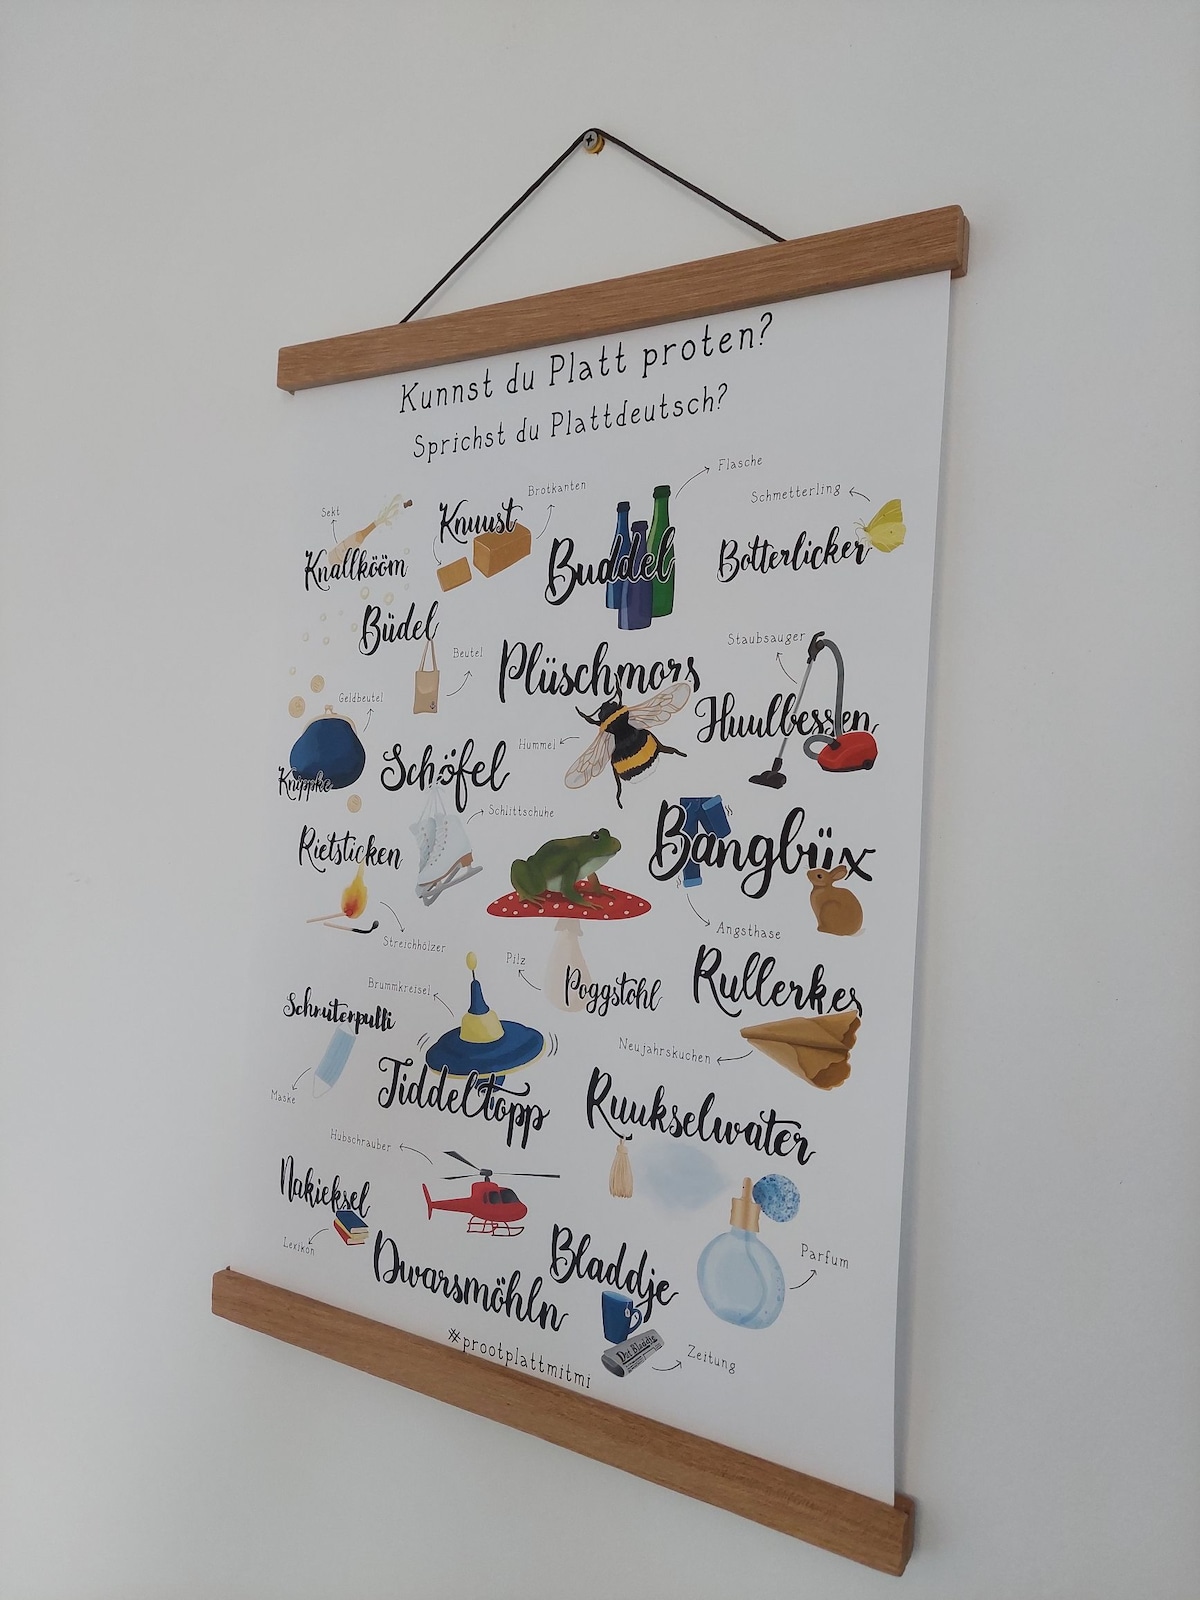 Kunnst du Platt proten?
Sprichst du Plattdeutsch?
Sekt
Knallkööm
Knuust
Brotkanten
Buddel
Flasche
Schmetterling
Botterlicker
Büdel
Beutel
Plüschmors
Hummel
Staubsauger
Huulbessen
Geldbeutel
Knippke
Schöfel
Schlittschuhe
Rietsticken
Streichhölzer
Bangbüx
Angsthase
Pilz
Poggstohl
Rullerkes
Neujahrskuchen
Schnutenpulli
Maske
Brummkreisel
Tiddeltopp
Ruukselwater
Parfum
Hubschrauber
Dwarsmöhln
Nakieksel
Lexikon
Bladdje
Dat Bladdje
Zeitung
#prootplattmitmi